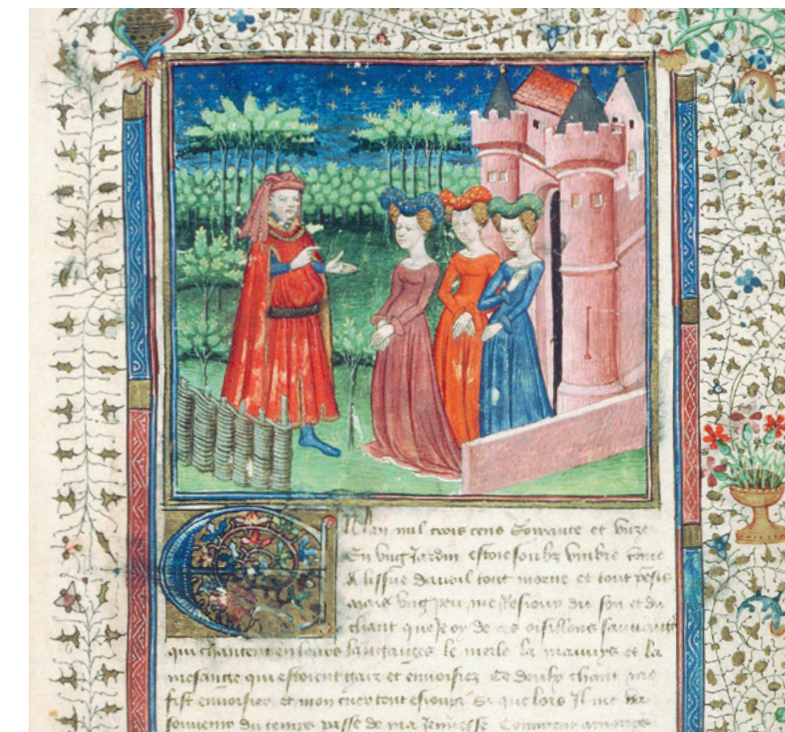 En lan mil trois cens soixante et unze
En ung Jardin estoie soubz lumbre
A lissue davril tout morne et tout pensis
mais ung peu me resiouy du son et du
chant que Je oy de ces oisillons sauvaiges
qui chantoient en leurs langaiges le merle la mauvis et la
mesange qui estoient gaiz et envoisiez Ce doulx chant me
fist envoisier et mon cuer tout esiouir Si que lors Il me va
souvenir du temps passe de ma Jeunesse Comment amours